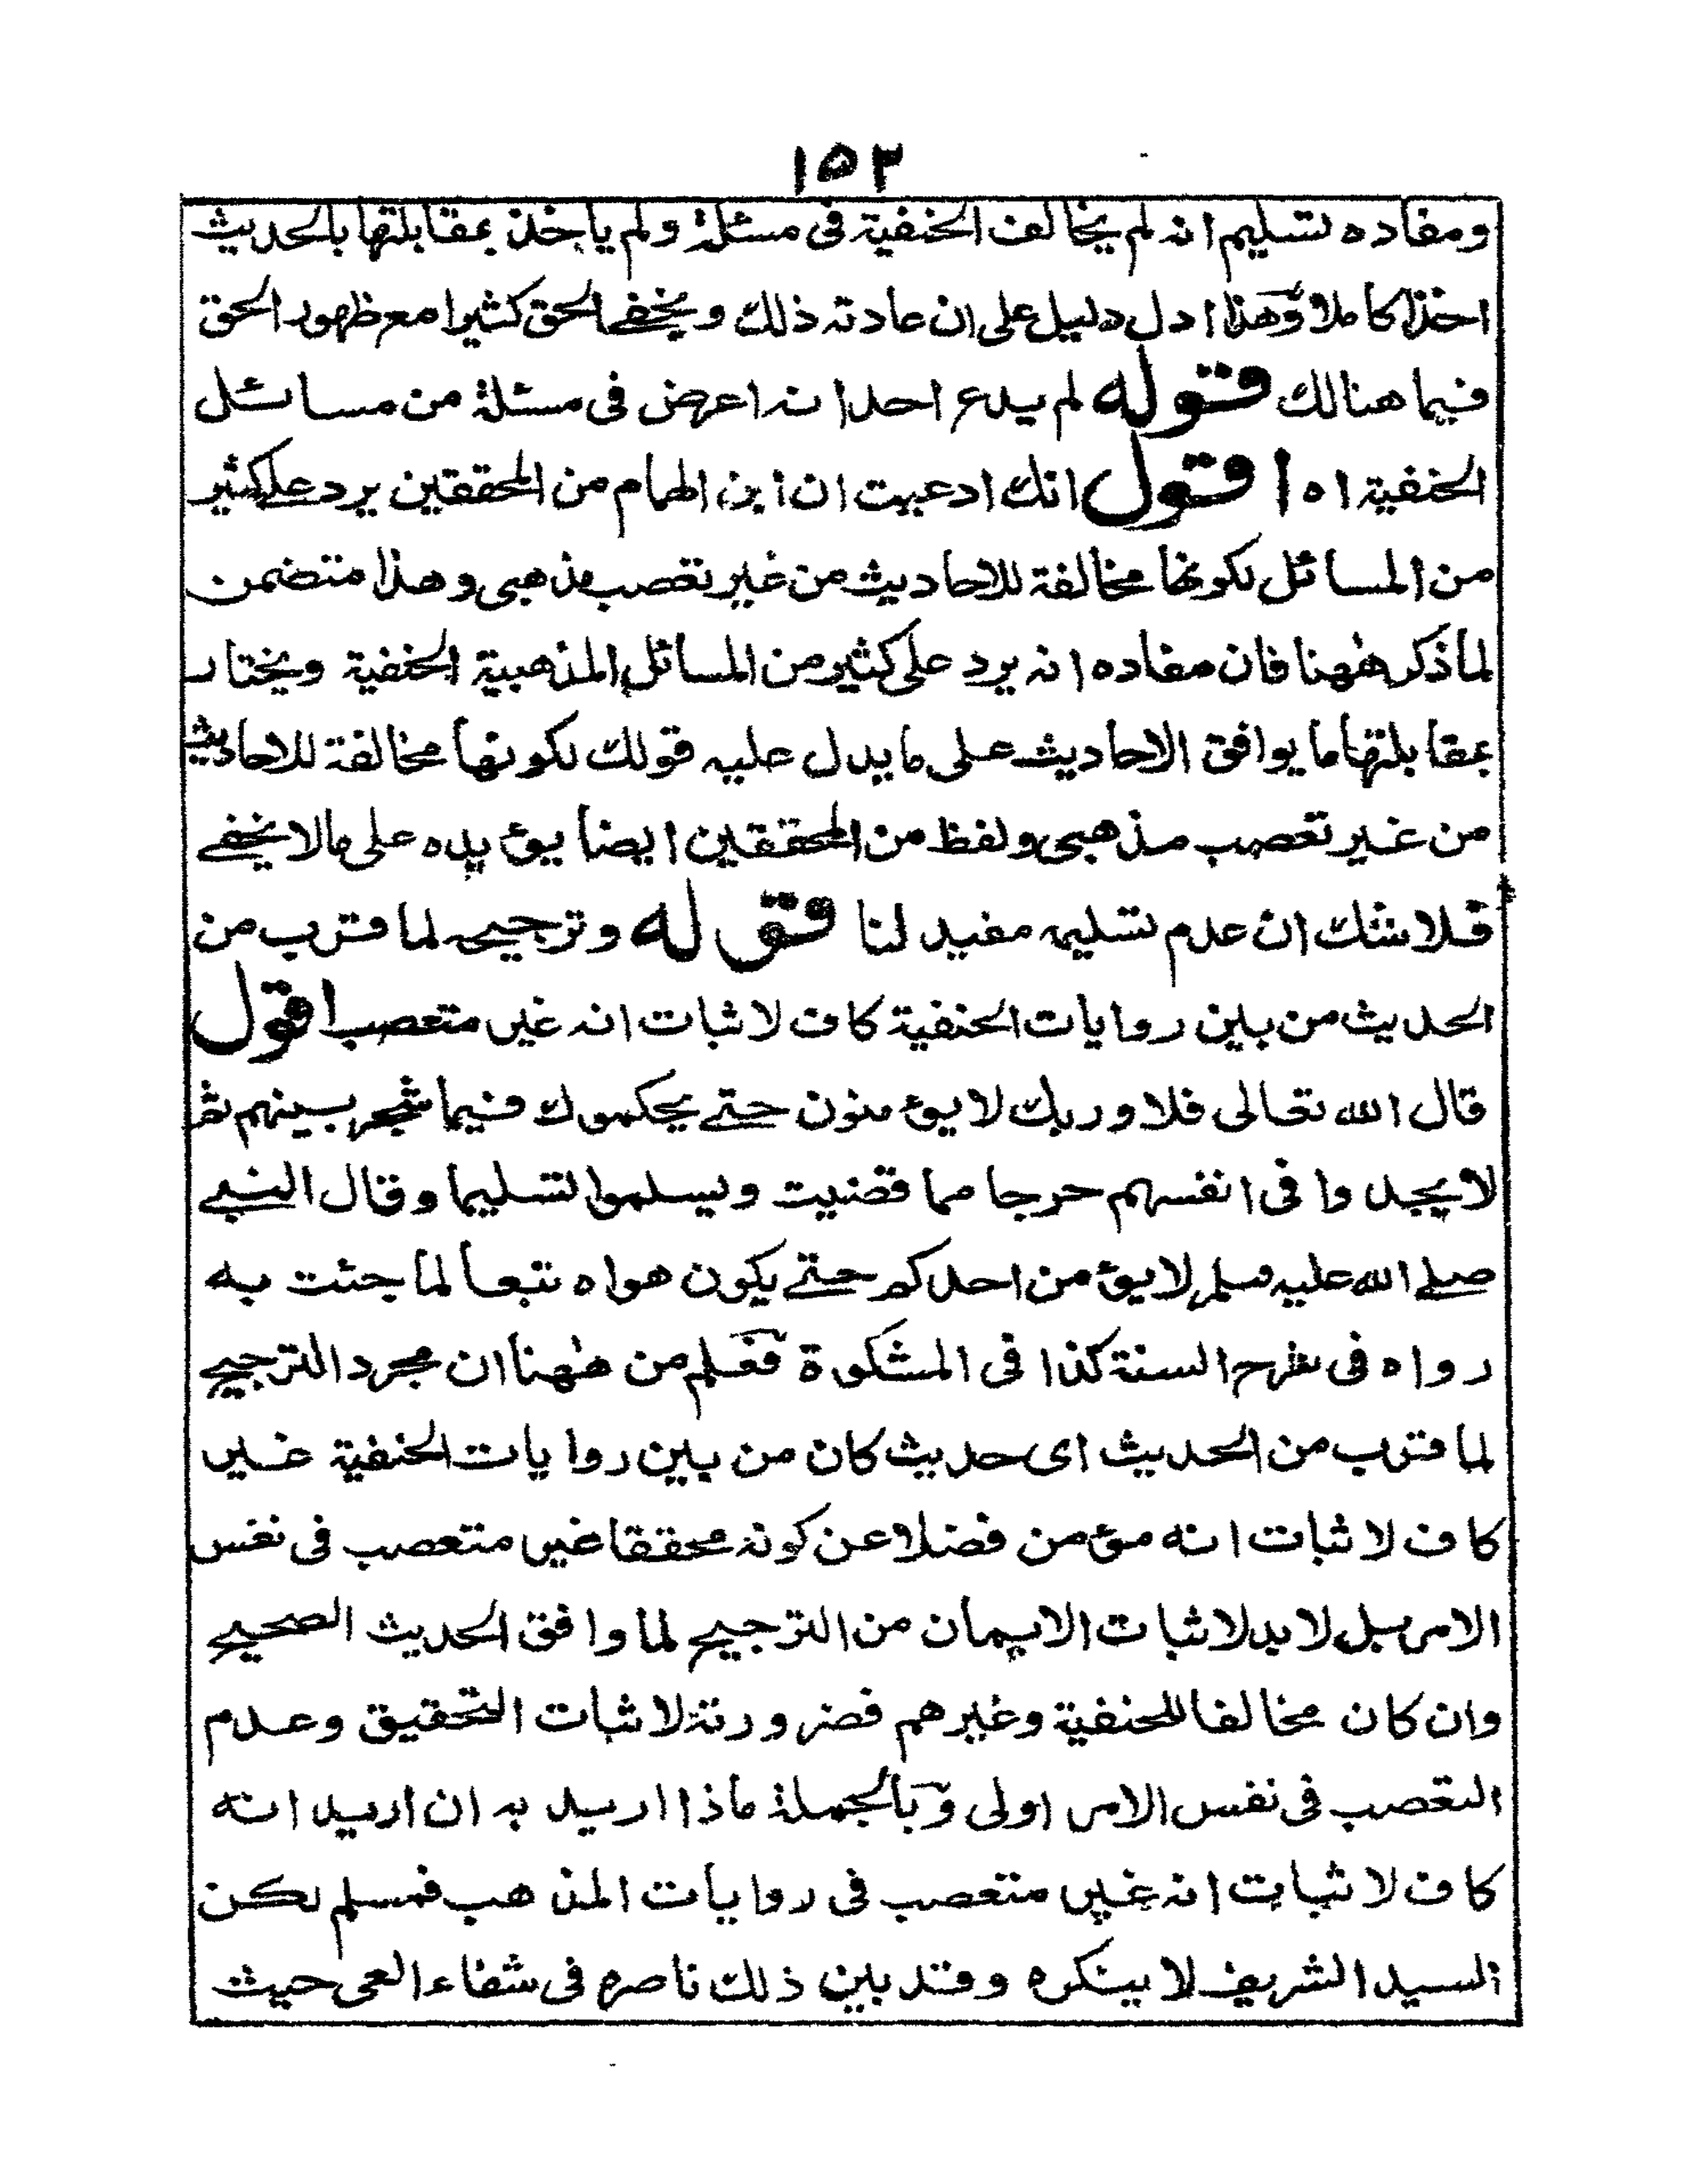 ١٥٣
ومفاده تسليم انه لم يخالف الحنفية فى مسئلة ولم ياخذ بمقابلتها بالحديث
اخذا كاملا وهذا ادل دليل على ان عادته ذلك ويخفے الحق كثيرا مع ظهور الحق
فيما هنالك قوله لم يدع احد انه اعرض فى مسئلة من مسائل
الحنفية اه اقول انك ادعيت ان ابن الهمام من المحققين يرد علے كثير
من المسائل لكونها مخالفة للاحاديث من غير تعصب مذهبى وهذا متضمن
لما ذكر ههنا فان مفاده انه يرد على كثير من المسائل المذهبية الحنفية ويختار
بمقابلتها ما يوافق الاحاديث على ما يدل عليه قولك لكونها مخالفة للاحاديث
من غير تعصب مذهبى ولفظ من المحققين ايضا يؤيده على مالا يخفے
فلا شك ان عدم تسليمه مفيد لنا قوله وترجيحه لما قرب من
الحديث من بين روايات الحنفية كاف لاثبات انه غير متعصب اقول
قال الله تعالى فلا وربك لا يؤمنون حتے يحكموك فيما شجر بينهم ثم
لا يجدوا فى انفسهم حرجا مما قضيت ويسلموا تسليما وقال النبے
صلے الله عليه وسلم لا يؤمن احدكم حتے يكون هواه تبعا لما جئت به
رواه فى شرح السنة كذا فى المشكوة فعلم من ههنا ان مجرد الترجيح
لما قرب من الحديث اى حديث كان من بين روايات الحنفية غير
كاف لاثبات انه مؤمن فضلا عن كونه محققا غير متعصب فى نفس
الامر بل لا بد لاثبات الايمان من الترجيح لما وافق الحديث الصحيح
وان كان مخالفا للحنفية وغيرهم فضرورته لاثبات التحقيق وعدم
التعصب فى نفس الامر اولى وبالجملة ماذا اريد به ان اريد انه
كاف لاثبات انه غير متعصب فى روايات المذهب فمسلم لكن
السيد الشريف لا ينكره وقد بين ذلك ناصره فى شفاء العى حيث